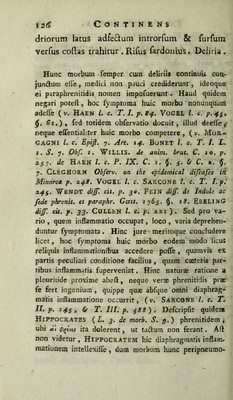 126 CONTINENS
driorum latus adfectum introrsum & sursum
versus costas trahitur. Risus sardonius. Deliria.
Hunc morbum semper cum deliriis continuis con-
junctum esse, medici non pauci crediderunt, ideoque
ei paraphrenitidis nomen imposuerunt. Haud quidem
negari potest, hoc symptoma huic morbo nonnunquam
adesse (v. HAEN l. c. T. I. p. 84. VOGEL l. c. p. 145.
§. 61.), sed totidem observatio docuit, illud deesse,
neque essentialiter huic morbo competere, (v. MOR-
GAGNI l. c. Epist. 7. Art. 14. BONET l. c. T. I. L.
1. S. 7. Obs. 1. WILLIS. de anim. brut. C. 10. p.
257. de HAEN l. c. P. IX. C. 1. §. 5. & C. 2. §.
7. CLEGHORN Observ. on the epidemical diseases in
Minorca p. 248. VOGEL l. c. SARCONE l. c. T. I. p.
245. WENDT diss. cit. p. 30. FEIN diss. de Indole ac
sede phrenit. et paraphr. Gœtt. 1765. §. 18. EBELING
diss. cit. p. 33. CULLEN l. c. p. 221). Sed pro va-
rio, quem inflammatio occupat, loco, varia deprehen-
duntur symptomata. Hinc jure meritoque concludere
licet, hoc symptoma huic morbo eodem modo sicut
reliquis inflammationibus accedere posse, quamvis ex
partis peculiari conditione facilius, quam cæteris par-
tibus inflammatis superveniat. Hinc naturæ ratione a
pleuritide proxime abest, neque veræ phrenitidis præ
se fert ingenium, quippe quæ absque omni diaphrag-
matis inflammatione occurrit, (v. SARCONE l. c. T.
II. p. 145, & T. III. p. 588). Descripsit quidem
HIPPOCRATES (L. 3. de morb. S. 9.) phrenitidem,
ubi αἱ φρένες ita dolerent, ut tactum non ferant. Ast
non videtur, HIPPOCRATEM hic diaphragmatis inflam-
mationem intellexisse, dum morbum hunc peripneumo-